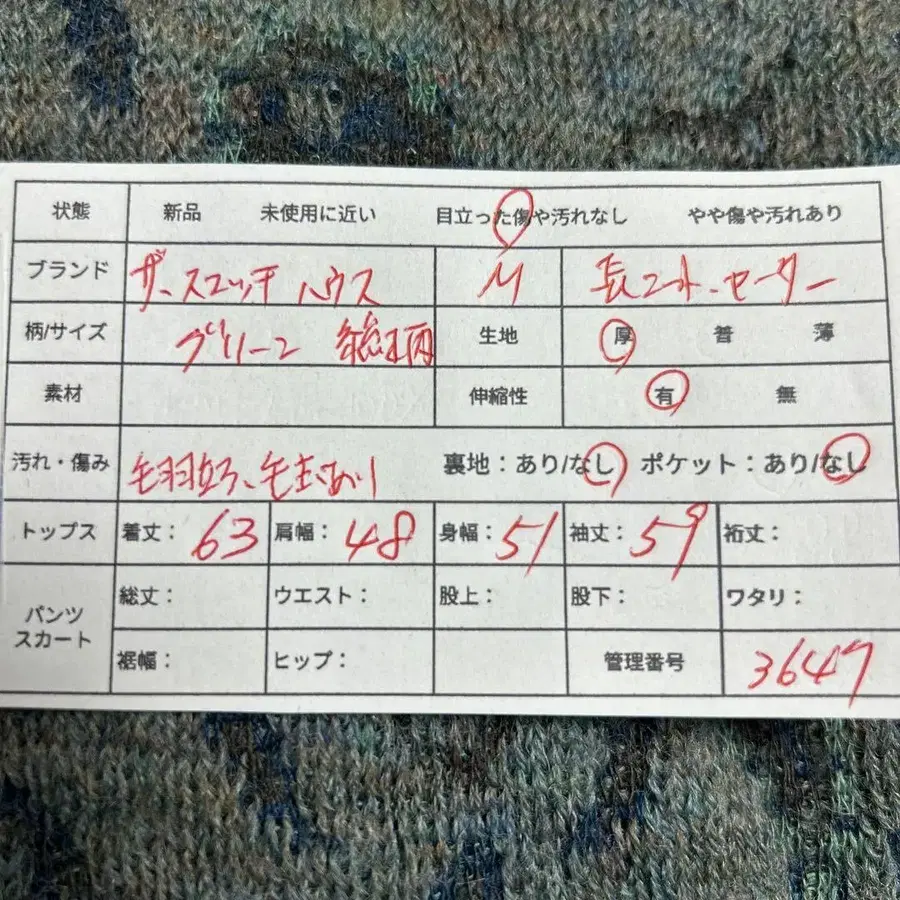 状態 新品 未使用に近い 目立った傷や汚れなし やや傷や汚れあり
ブランド ザ・スコッチ ハウス M 長ニット・セーター
柄/サイズ グリーン 総柄 生地 厚 普 薄
素材 伸縮性 有 無
汚れ・傷み 毛羽立ち、毛玉あり 裏地：あり/なし ポケット：あり/なし
トップス 着丈： 63 肩幅： 48 身幅： 51 袖丈： 59 裄丈：
パンツ スカート 総丈： ウエスト： 股上： 股下： ワタリ：
裾幅： ヒップ： 管理番号 3647